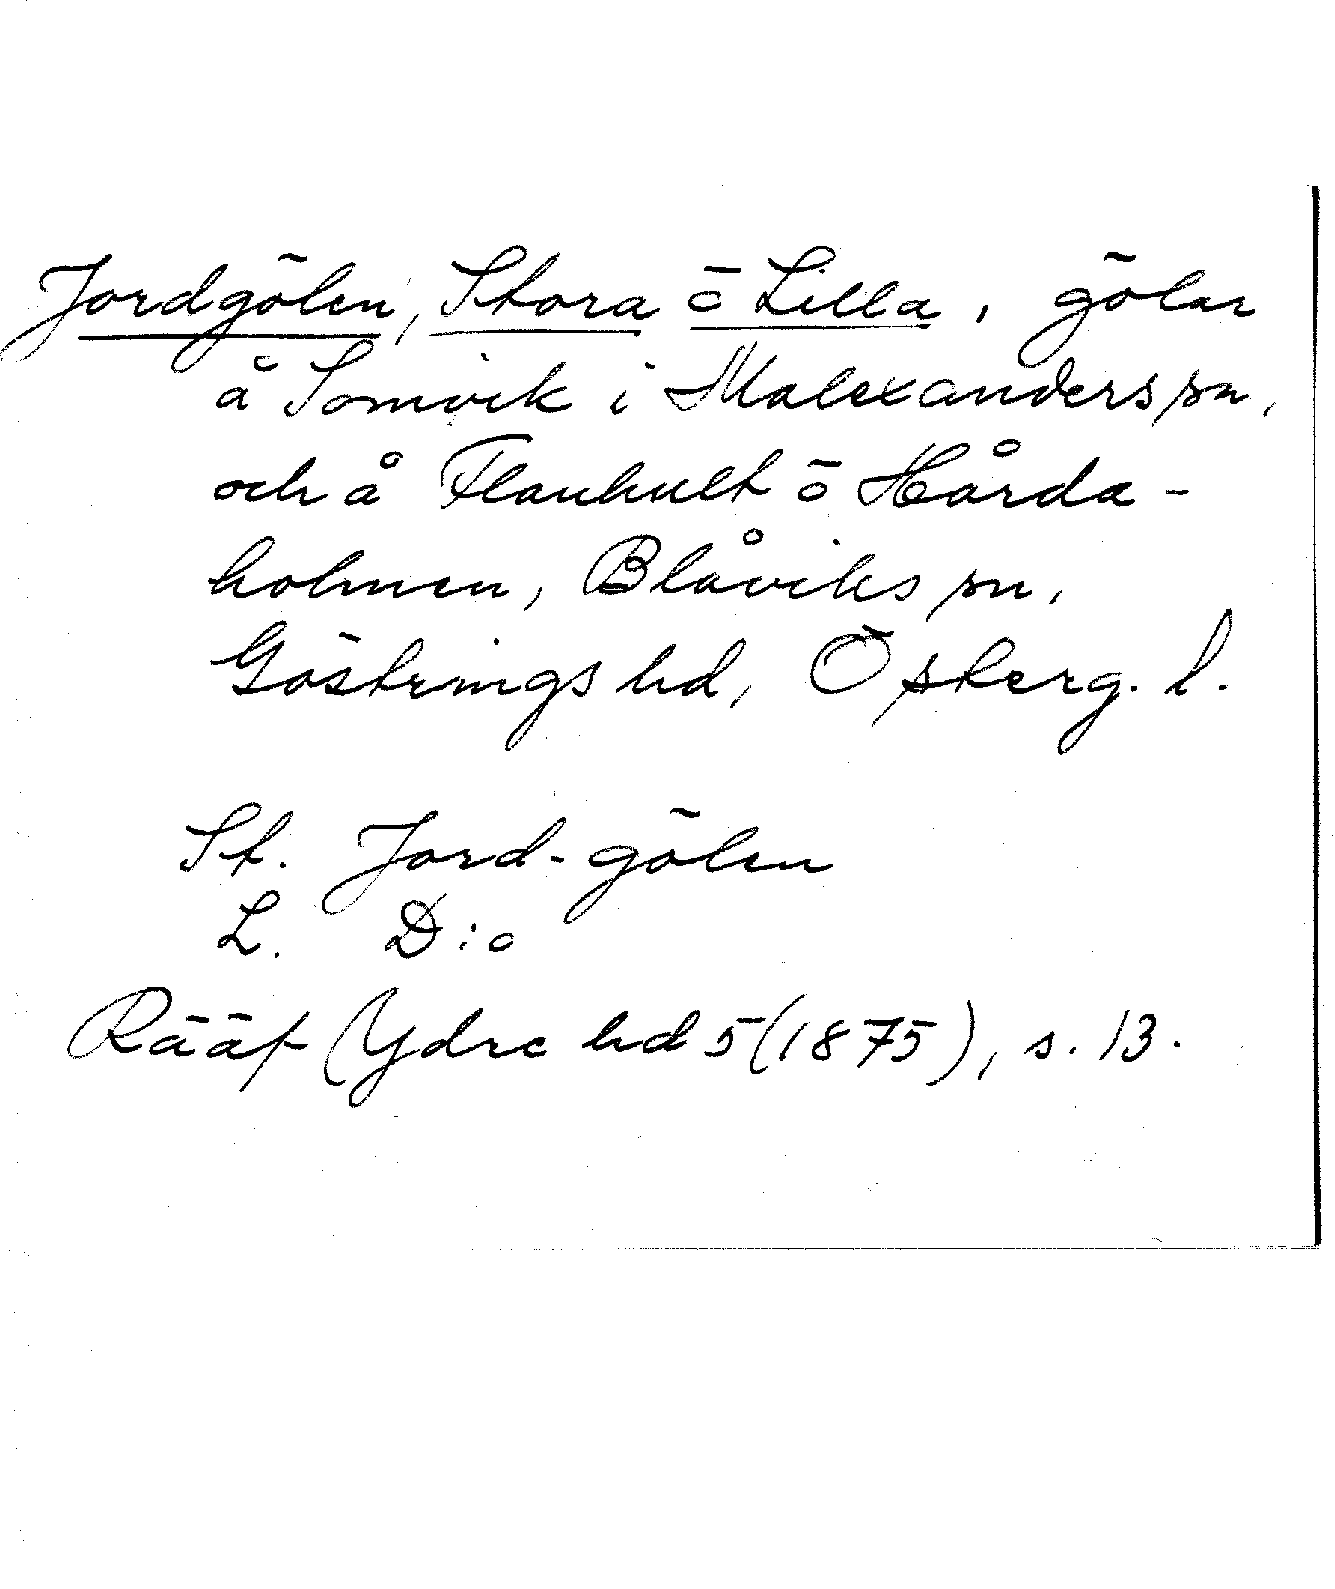 Jordgölen, Stora ö Lilla, gölar
å Somvik i Malexanders sn,
och å Flanhult ö Hårda-
holmen, Blåviks sn,
Göstrings hd, Österg. l.
St. Jord-gölen
L. D:o
Rääf Ydre hd 5 (1875), s. 13.